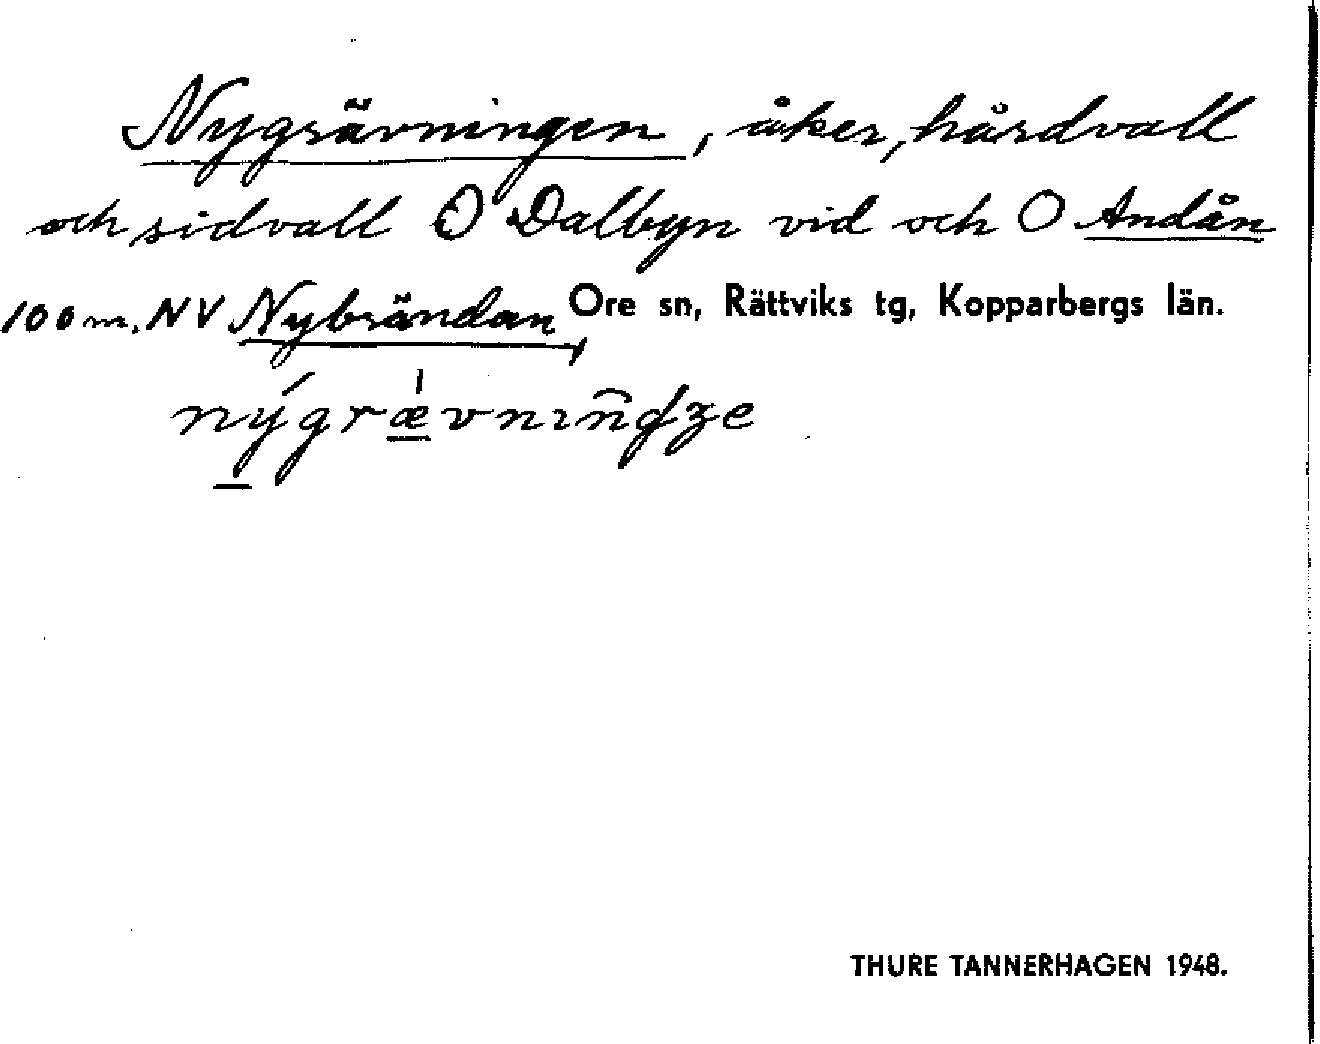 Nygrävningen, åker, hårdvall
och sidvall O Dalbyn vid och O Andån
100 m. NV Nybrändan, Ore sn, Rättviks tg, Kopparbergs län.
THURE TANNERHAGEN 1948.